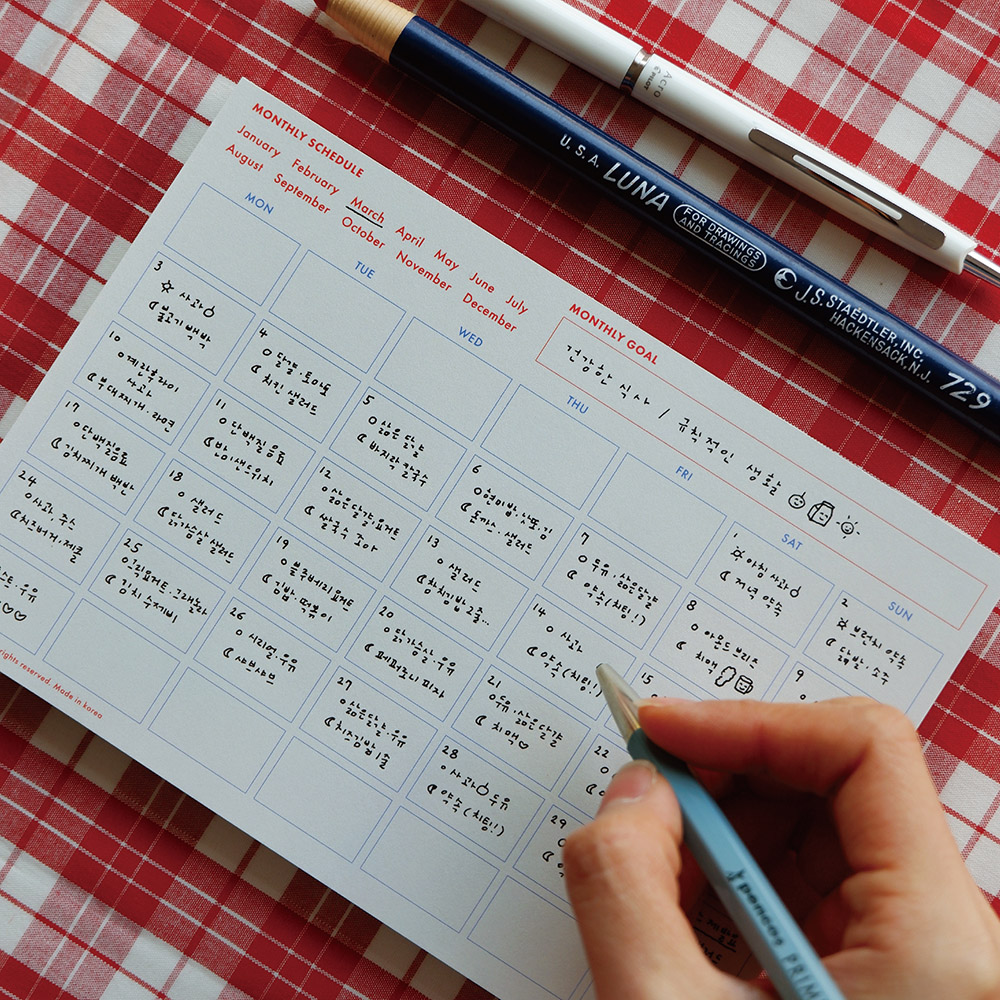 U.S.A. LUNA FOR DRAWINGS AND TRACINGS J.S. STAEDTLER, INC. HACKENSACK, N.J. 729
Acro
PILOT
MONTHLY SCHEDULE
January February March April May June July
August September October November December
MONTHLY GOAL
건강한 식사 / 규칙적인 생활
MON
TUE
WED
THU
FRI
SAT
SUN
1
아침 사과
저녁 약속
2
브런치 약속
소주
3
사과
불고기 백반
4
달걀·토마토
치킨 샐러드
5
삶은달걀
바지락 칼국수
6
현미밥·낫또·김
돈까스·샐러드
7
두유·삶은달걀
약속(치팅!!)
8
아몬드브리즈
치맥
9
10
계란후라이
사과
부대찌개·라면
11
단백질음료
반미샌드위치
12
삶은달걀,요거트
쌀국수
13
샐러드
참치김밥 2줄..
14
사과
약속(치팅!!)
15
17
단백질음료
김치찌개 백반
18
샐러드
닭가슴살 샐러드
19
블루베리요거트
김밥·떡볶이
20
닭가슴살·우유
페퍼로니 피자
21
두유·삶은달걀
치맥♡
22
24
사과, 주스
치즈버거, 제콜
25
그릭요거트·그래놀라
김치 수제비
26
시리얼·우유
샤브샤브
27
삶은달걀·우유
치즈김밥 1줄
28
사과 두유
약속(치팅!!)
29
우유
♡♡
rights reserved. Made in korea